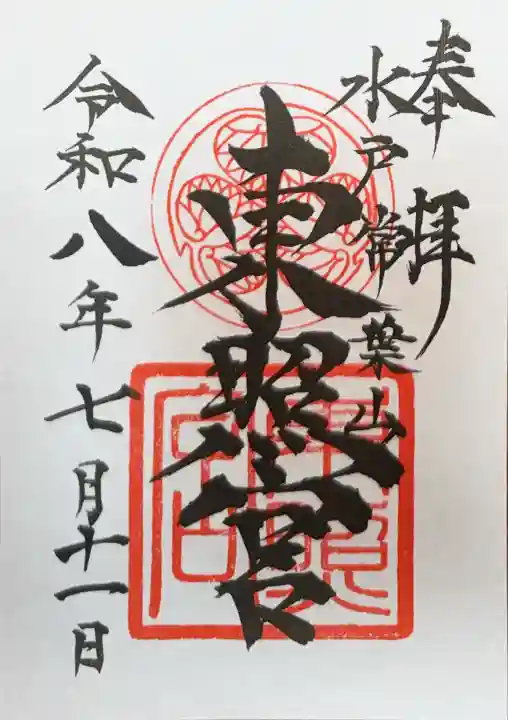 奉拝
水戸常葉山
東照宮
令和八年七月十一日
東照宮